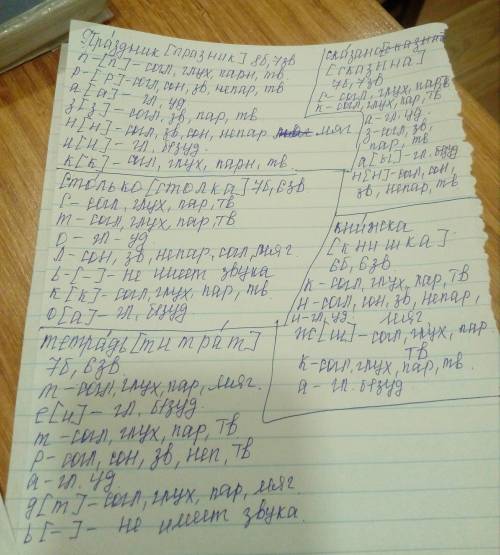 Праздник [празник] 8б, 7зв
п-[п]-согл, глух, парн, тв
р-[р]-согл, сон, зв, непар, тв
а[а]-гл. уд.
з[з]-согл, зв, пар, тв
н[н]-согл, зв, сон, непар мяг
и[и]-гл. безуд.
к[к]-согл, глух, парн, тв
столько [столка] 7б, 6зв
с-согл, глух, пар, тв
т-согл, глух, пар, тв
о-гл-уд
л-сон, зв, непар, согл, мяг
ь-[-]-не имеет звука
к[к]-согл, глух, пар, тв.
о[а]-гл, безуд
тетрадь [титрат]
7б, 6зв.
т-согл, глух, пар, мяг.
е[и]-гл. безуд.
т-согл, глух, пар, тв
р-согл, сон, зв, неп, тв
а-гл. уд.
д[т]-согл, глух, пар, мяг.
ь[-]-не имеет звука.
сказано
[сказина]
7б, 7зв
с-согл, глух, пар, тв
к-согл, глух, пар, тв
а-гл. уд
з-согл, зв,
пар, тв
а[ы]-гл. безуд
н[н]-согл, сон,
зв, непар, тв
книжка
[книшка]
6б, 6зв
к-согл, глух, пар, тв
н-согл, сон, зв, непар,
и-гл. уд. мяг
ж[ш]-согл, глух, пар
тв
к-согл, глух, пар, тв.
а-гл. безуд